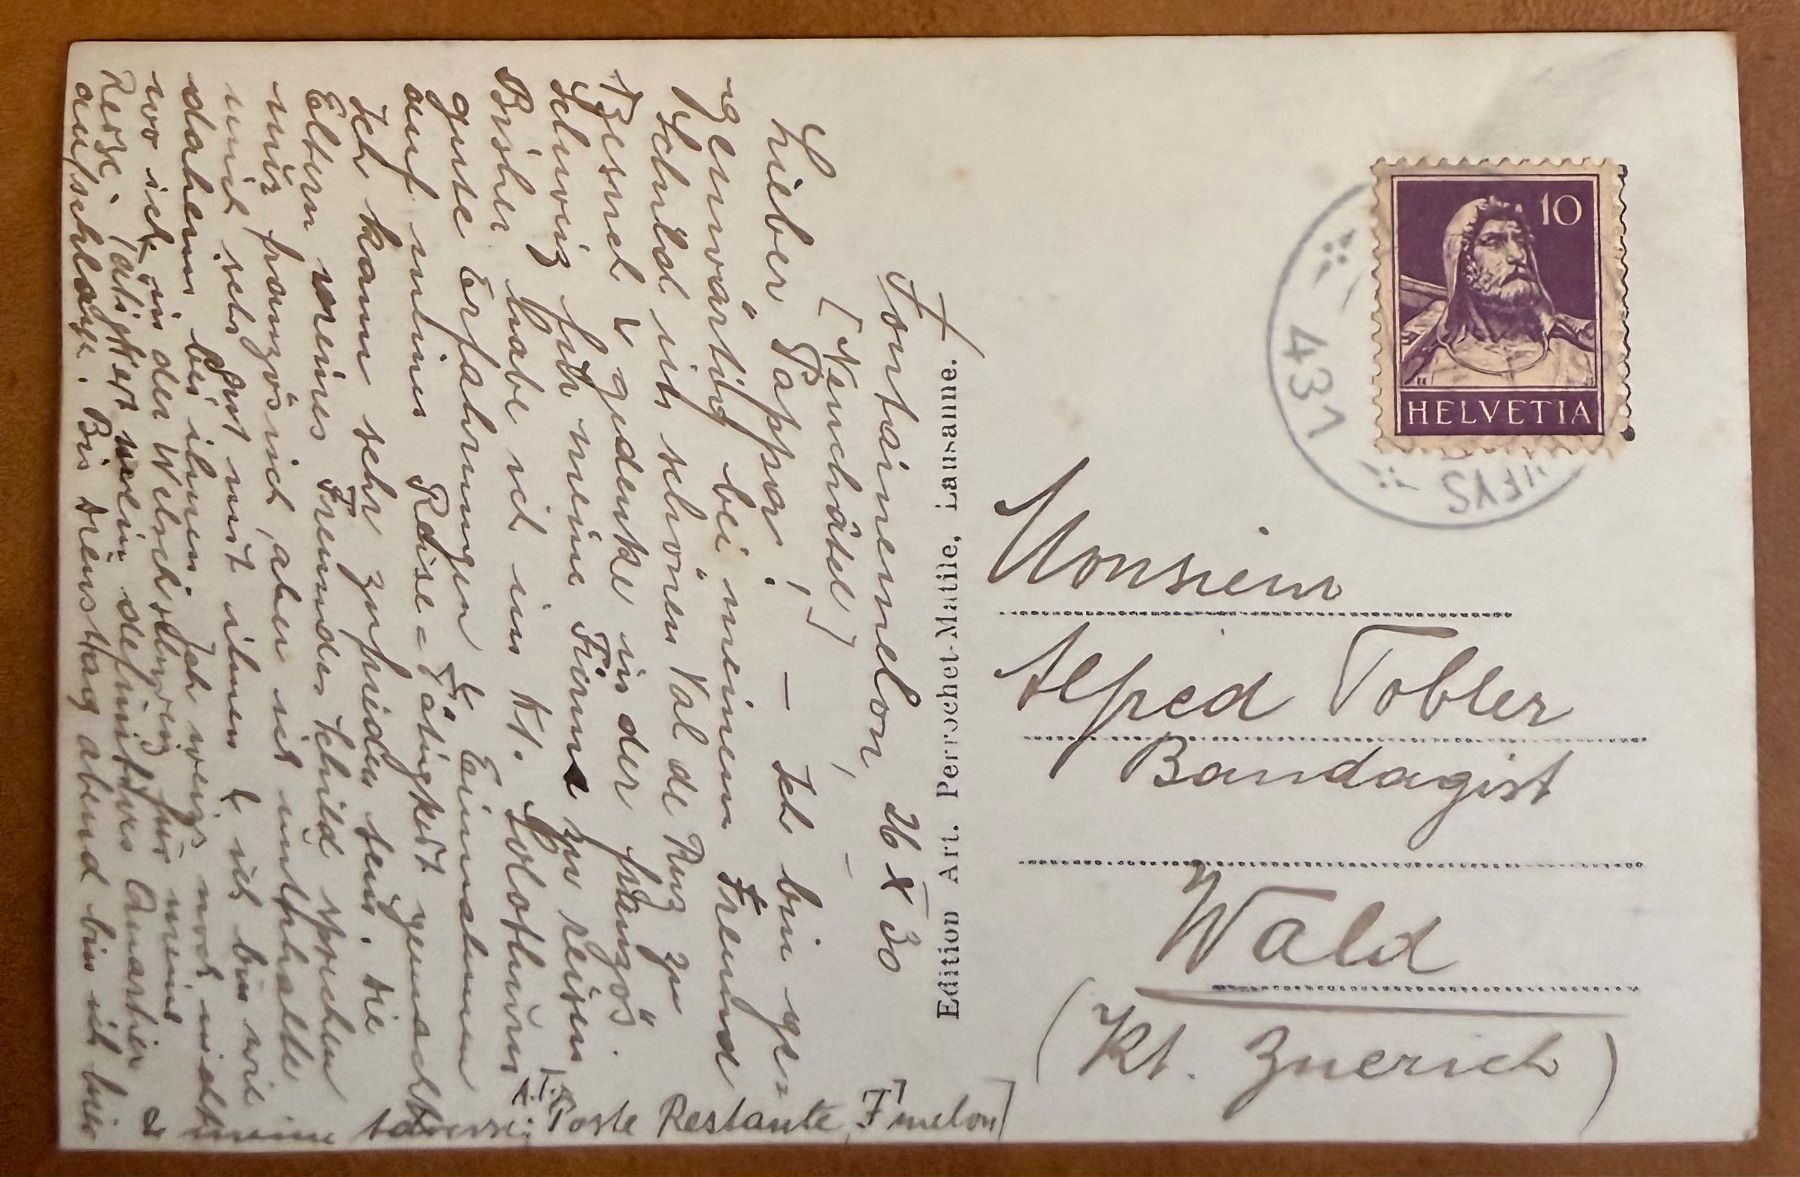 Fontainemelon, 26 X 30
[Neuchâtel]
Lieber Pappa! — Ich bin ge=
genwärtig bei meinem Freund
Schild im schönen Val de Ruz zu
& gedenke in der französ.
Schweiz für meine Firma zu reisen
Bisher habe ich im Kt. Solothurn
gute Erfahrungen & Einnahmen
auf meiner Reise=Tätigkeit gemacht
Ich kann sehr zufrieden sein. Die
Eltern meines Freundes Schild sprechen
nur französisch, aber ich unterhalte
mich sehr gut mit ihnen & ich bin wie
daheim bei ihnen. Ich weiss noch nicht
wo ich in der Welschschweiz für meine
Reise-Tätigkeit mein definitives Quartier
aufschlage. Bis Dienstag abend bin ich hier
& meine Adresse: A.T. Poste Restante, F'melon]
Edition Art. Perrochet-Matile, Lausanne.
10
HELVETIA
431
Monsieur
Alfred Tobler
Bandagist
Wald
(Kt. Zuerich)